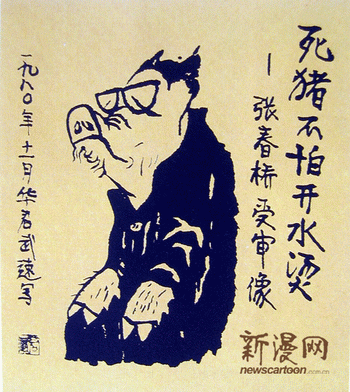 死猪不怕开水烫
—张春桥受审像
一九八〇年十一月华君武速写
新漫网
newscartoon.com.cn